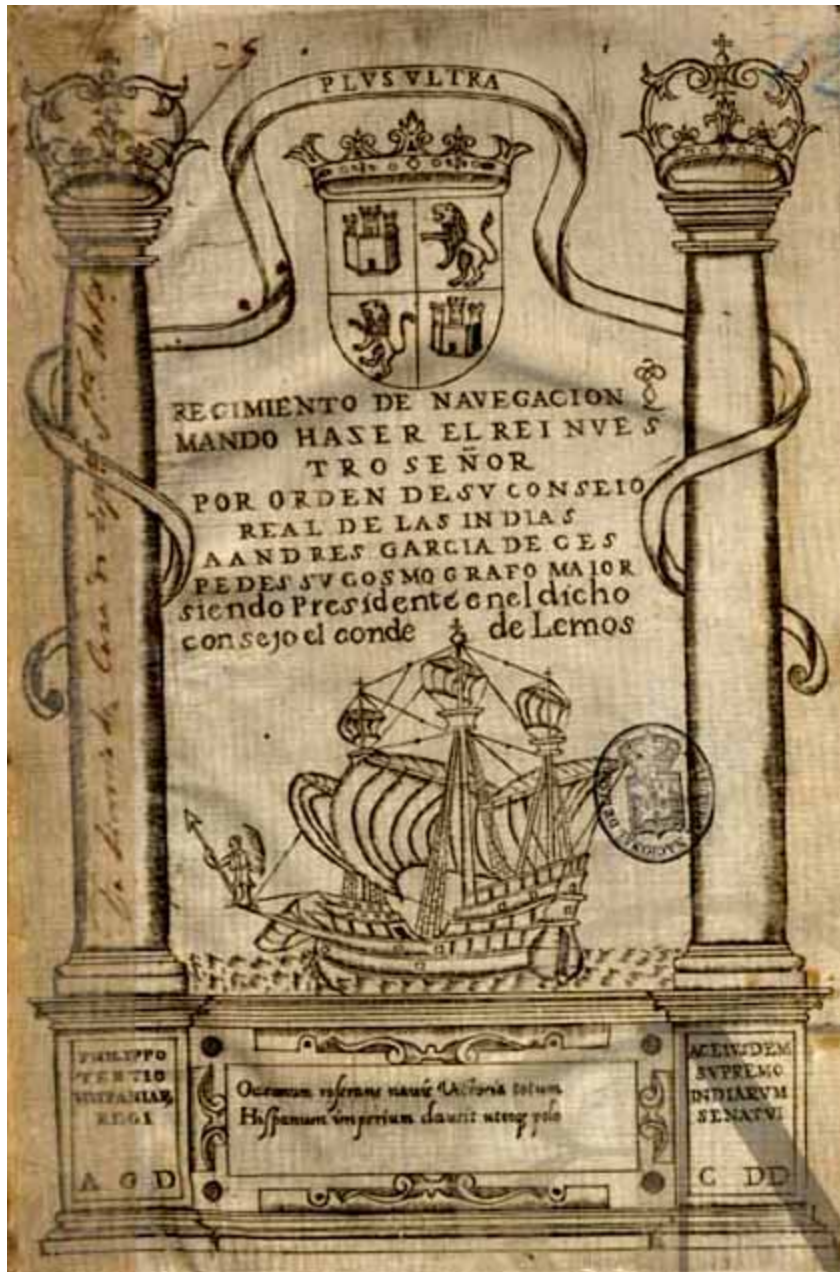 PLVS VLTRA
REGIMIENTO DE NAVEGACION Q
MANDO HAZER EL REI NVES
TRO SEÑOR
POR ORDEN DE SV CONSEIO
REAL DE LAS INDIAS
A ANDRES GARCIA DE CES
PEDES SV COSMOGRAFO MAIOR
siendo Presidente en el dicho
consejo el conde de Lemos
PHILIPPO
TERTIO
HISPANIAR,
REGI
A G D
Oceanum reserans navis Victoria totum
Hispanum imperium clausit utroq polo
AC EIVSDEM
SVPREMO
INDIARVM
SENATVI
C DD